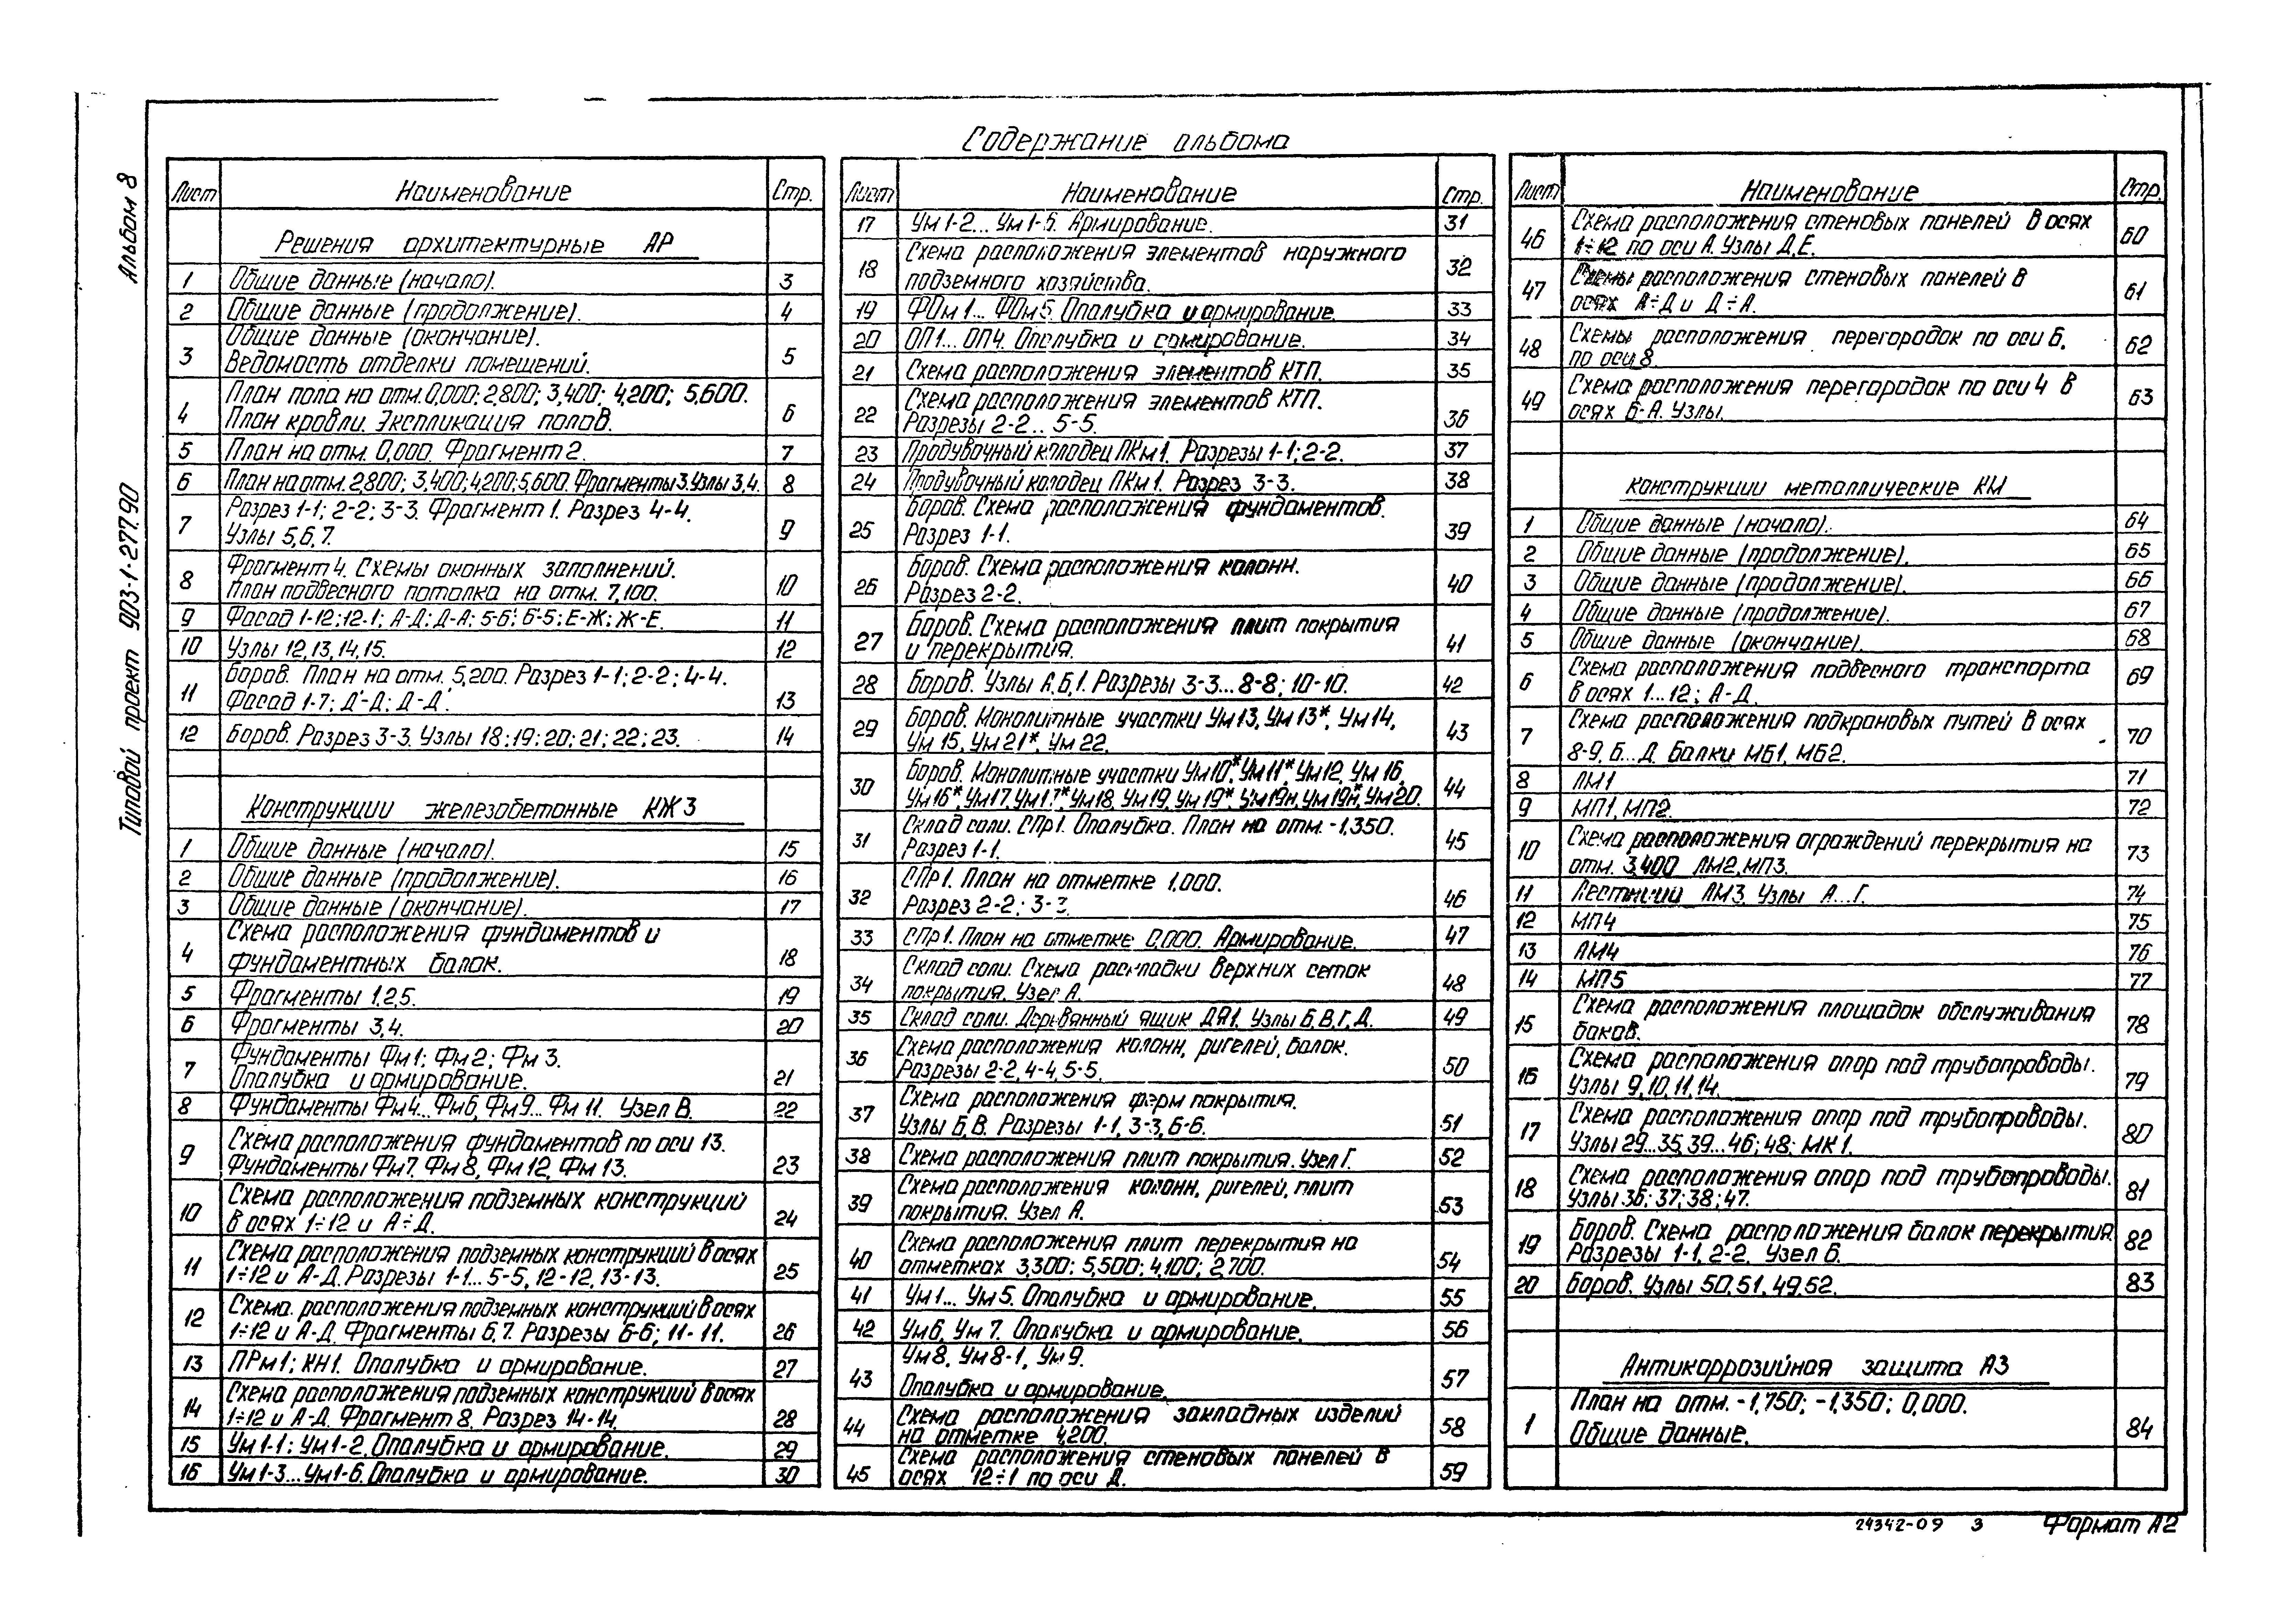 Содержание альбома
Альбом 8
Типовой проект 903-1-277.90
Лист Наименование Стр.
Решения архитектурные АР
1 Общие данные (начало). 3
2 Общие данные (продолжение). 4
Общие данные (окончание).
3 Ведомость отделки помещений. 5
План пола на отм. 0,000; 2,800; 3,400; 4,200; 5,600.
4 План кровли. Экспликация полов. 6
5 План на отм. 0,000. Фрагмент 2. 7
6 План на отм. 2,800; 3,400; 4,200; 5,600. Фрагменты 3. Узлы 3,4. 8
Разрез 1-1; 2-2; 3-3. Фрагмент 1. Разрез 4-4.
7 Узлы 5,6,7. 9
Фрагмент 4. Схемы оконных заполнений.
8 План подвесного потолка на отм. 7,100. 10
9 Фасад 1-12; 12-1; А-Д; Д-А; 5-6; 6-5; Е-Ж; Ж-Е. 11
10 Узлы 12,13,14,15. 12
Боров. План на отм. 5,200. Разрез 1-1; 2-2; 4-4.
11 Фасад 1-7; Д'-Д; Д-Д'. 13
12 Боров. Разрез 3-3. Узлы 18; 19; 20; 21; 22; 23. 14
Конструкции железобетонные КЖ3
1 Общие данные (начало). 15
2 Общие данные (продолжение). 16
3 Общие данные (окончание). 17
Схема расположения фундаментов и
4 фундаментных балок. 18
5 Фрагменты 1,2,5. 19
6 Фрагменты 3,4. 20
Фундаменты Фм1; Фм2; Фм 3.
7 Опалубка и армирование. 21
8 Фундаменты Фм4... Фм6, Фм9... Фм 11. Узел В. 22
Схема расположения фундаментов по оси 13.
9 Фундаменты Фм7, Фм8, Фм 12, Фм 13. 23
Схема расположения подземных конструкций
10 в осях 1÷12 и А÷Д. 24
Схема расположения подземных конструкций в осях
11 1÷12 и А-Д. Разрезы 1-1... 5-5, 12-12, 13-13. 25
Схема расположения подземных конструкций в осях
12 1÷12 и А-Д. Фрагменты 6,7. Разрезы 6-6; 11-11. 26
13 ПРм1; КН1. Опалубка и армирование. 27
Схема расположения подземных конструкций в осях
14 1÷12 и А-Д. Фрагмент 8. Разрез 14-14. 28
15 Ум1-1; Ум1-2. Опалубка и армирование. 29
16 Ум1-3...Ум1-6. Опалубка и армирование. 30
Лист Наименование Стр.
17 Ум 1-2... Ум 1-6. Армирование. 31
Схема расположения элементов наружного
18 подземного хозяйства. 32
19 ФОм 1... ФОм5. Опалубка и армирование. 33
20 ОП1... ОП4. Опалубка и армирование. 34
21 Схема расположения элементов КТП. 35
Схема расположения элементов КТП.
22 Разрезы 2-2... 5-5. 36
23 Продувочный колодец ПКм1. Разрезы 1-1; 2-2. 37
24 Продувочный колодец ПКм1. Разрез 3-3. 38
Боров. Схема расположения фундаментов.
25 Разрез 1-1. 39
Боров. Схема расположения колонн.
26 Разрез 2-2. 40
Боров. Схема расположения плит покрытия
27 и перекрытия. 41
28 Боров. Узлы А,Б,1. Разрезы 3-3... 8-8; 10-10. 42
Боров. Монолитные участки Ум13, Ум13*, Ум14,
29 Ум 15, Ум 21*, Ум 22. 43
Боров. Монолитные участки Ум10*, Ум11*, Ум12, Ум 16,
30 Ум16*, Ум17, Ум17*, Ум18, Ум19, Ум19*, Ум19н, Ум19н*, Ум20. 44
Склад соли. СПр1. Опалубка. План на отм. -1,350.
31 Разрез 1-1. 45
СПр1. План на отметке 1.000.
32 Разрез 2-2; 3-3. 46
33 СПр1. План на отметке 0,000. Армирование. 47
Склад соли. Схема раскладки верхних сеток
34 покрытия. Узел А. 48
35 Склад соли. Деревянный ящик ДЯ1. Узлы Б,В,Г,Д. 49
Схема расположения колонн, ригелей, балок.
36 Разрезы 2-2, 4-4, 5-5. 50
Схема расположения ферм покрытия.
37 Узлы Б,В. Разрезы 1-1, 3-3, 6-6. 51
38 Схема расположения плит покрытия. Узел Г. 52
Схема расположения колонн, ригелей, плит
39 покрытия. Узел А. 53
Схема расположения плит перекрытия на
40 отметках 3,300; 5,500; 4,100; 2,700. 54
41 Ум 1... Ум 5. Опалубка и армирование. 55
42 Ум6, Ум 7. Опалубка и армирование. 56
Ум8, Ум8-1, Ум9.
43 Опалубка и армирование. 57
Схема расположения закладных изделий
44 на отметке 4,200. 58
Схема расположения стеновых панелей в
45 осях 12÷1 по оси Д. 59
Лист Наименование Стр.
Схема расположения стеновых панелей в осях
46 1÷12 по оси А. Узлы Д,Е. 60
Схемы расположения стеновых панелей в
47 осях А÷Д и Д÷А. 61
Схемы расположения перегородок по оси 6,
48 по оси 8 62
Схема расположения перегородок по оси 4 в
49 осях Б-А. Узлы. 63
Конструкции металлические КМ
1 Общие данные (начало). 64
2 Общие данные (продолжение). 65
3 Общие данные (продолжение). 66
4 Общие данные (продолжение). 67
5 Общие данные (окончание). 68
Схема расположения подвесного транспорта
6 в осях 1...12; А-Д. 69
Схема расположения подкрановых путей в осях
7 8-9, Б...Д. Балки МБ1, МБ2. 70
8 ЛМ1 71
9 МП1, МП2. 72
Схема расположения ограждений перекрытия на
10 отм. 3,400 ЛМ2, МП3. 73
11 Лестницы ЛМ3. Узлы А...Г. 74
12 МП4 75
13 ЛМ4 76
14 МП5 77
Схема расположения площадок обслуживания
15 баков. 78
Схема расположения опор под трубопроводы.
16 Узлы 9,10,11,14. 79
Схема расположения опор под трубопроводы.
17 Узлы 29...35, 39...46; 48; МК1. 80
Схема расположения опор под трубопроводы.
18 Узлы 36; 37; 38; 47. 81
Боров. Схема расположения балок перекрытия
19 Разрезы 1-1, 2-2. Узел 6. 82
20 Боров. Узлы 50,51,49,52. 83
Антикоррозийная защита АЗ
План на отм. -1,750; -1,350; 0,000.
1 Общие данные. 84
24342-09 3 Формат А2